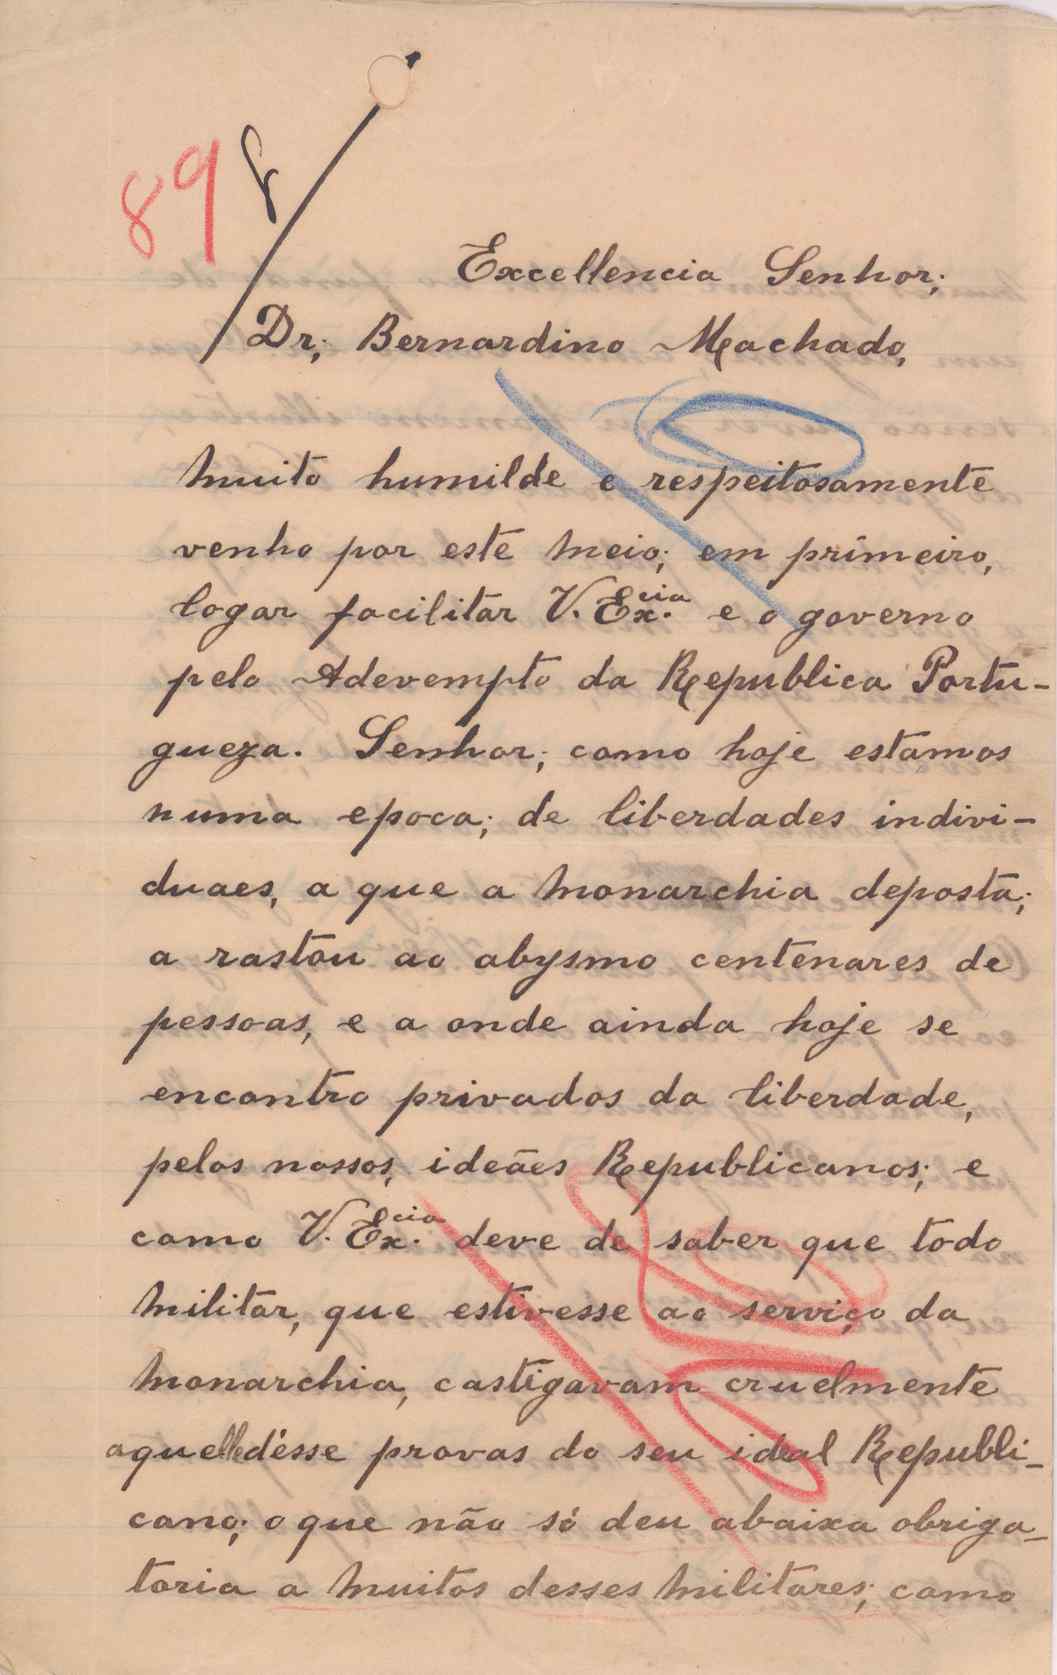 898
Excellencia Senhor;
Dr; Bernardino Machado,
Muito humilde e respeitosamente
venho por este meio; em primeiro,
logar facilitar V. Ex.cia e o governo
pelo Adevempto da Republica Portu-
gueza. Senhor; como hoje estamos
numa epoca; de liberdades indivi-
duaes, a que a monarchia deposta;
a rastou ao abysmo centenares de
pessoas, e a onde ainda hoje se
encontro privados da liberdade,
pelos nossos, ideães Republicanos; e
como V. Ex.cia deve de saber que todo
militar, que estivesse ao serviço da
monarchia, castigavam cruelmente
aquelle désse provas do seu ideal Republi-
cano; o que não só deu abaixa obriga-
toria a muitos desses militares; como